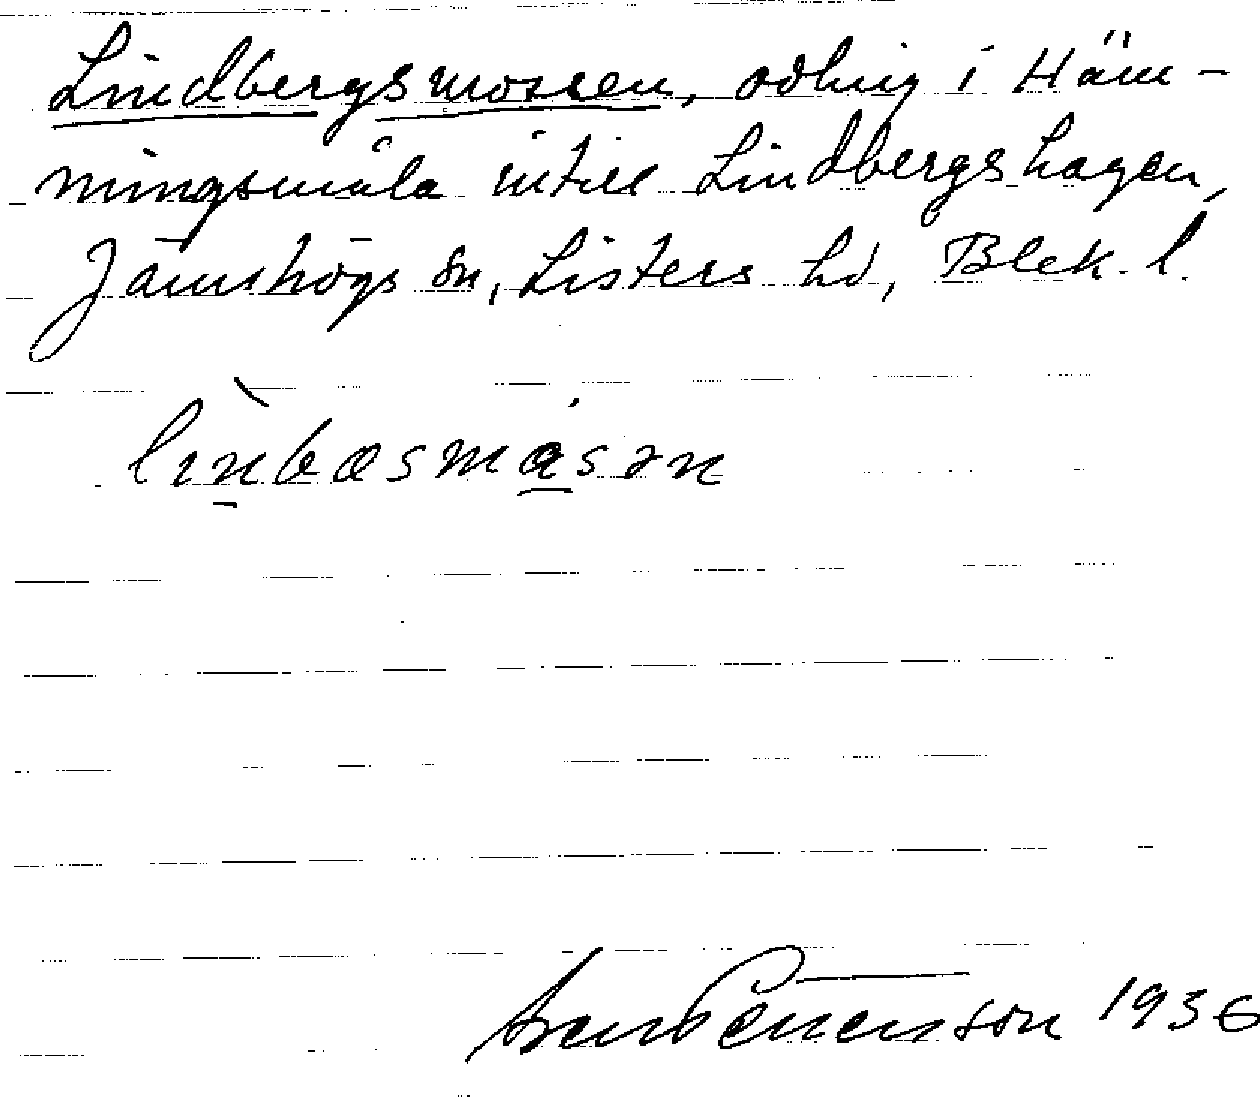 Lindbergsmossen, odling i Häm-
mingsmåla intill Lindbergshagen,
Jämshögs sn, Listers hd, Blek. l.
linbasmåsən
1936